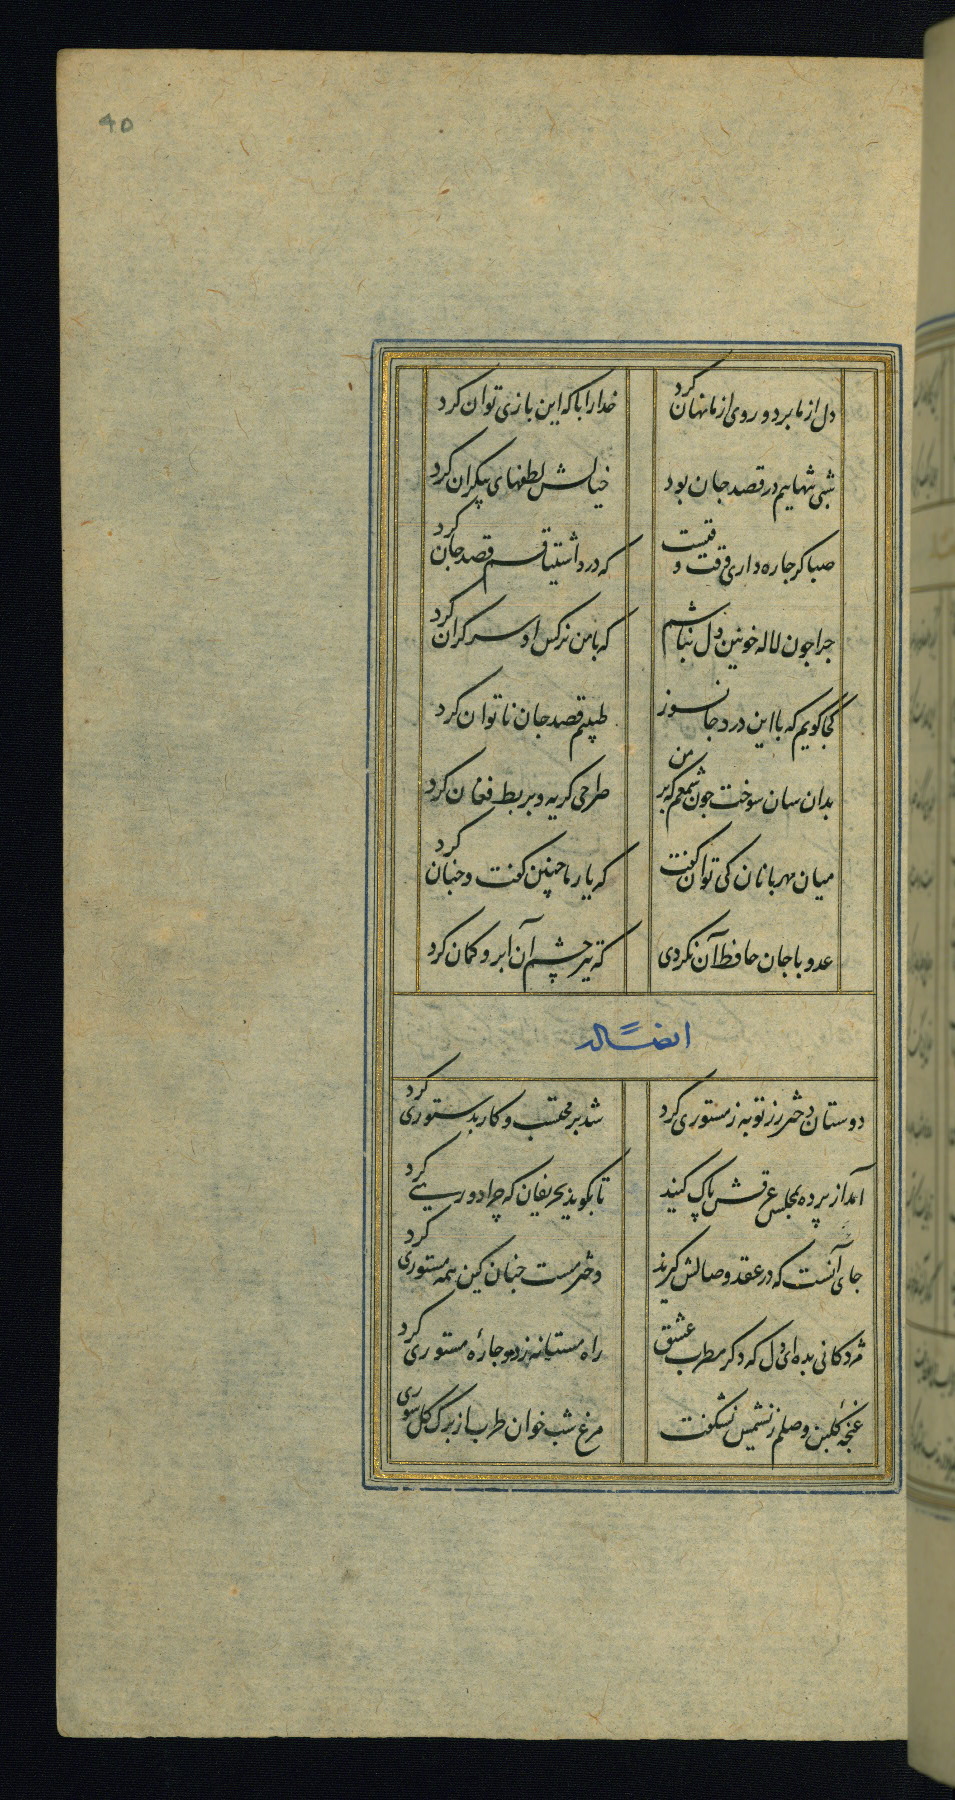 40
دل از ما برد و روی از ما نهان کرد
خدا را با که این بازی توان کرد
شبی تنهاییم در قصد جان بود
خیالش لطفهای بیکران کرد
صبا کر چاره داری وقت وقتیست
که درد اشتیاقم قصد جان کرد
چرا چون لاله خونین دل نباشم
که با من نرکس او سرکران کرد
کجا کویم که با این درد جانسوز
طبیبم قصد جان ناتوان کرد
بدان سان سوخت چون شمعم که بر من
صراحی کریه و بربط فغان کرد
میان مهربانان کی توان کفت
که یار ما چنین کفت و چنان کرد
عدو با جان حافظ آن نکردی
که تیر چشم آن ابرو کمان کرد
ایضاً له
دوستان دختر رز توبه ز مستوری کرد
شد بر محتسب و کار بدستوری کرد
آمد از پرده بمجلس عرقش پاک کنید
تا بکوید بحریفان که چرا دوری کرد
جای آنست که در عقد وصالش کیرند
دختر مست چنان کین همه مستوری کرد
مژدکانی بده ای دل که دکر مطرب عشق
راه مستانه زد و چارهٔ مستوری کرد
غنچهٔ کلبن وصلم ز نسیمش بشکفت
مرغ شب خوان طرب از برک کل سوری